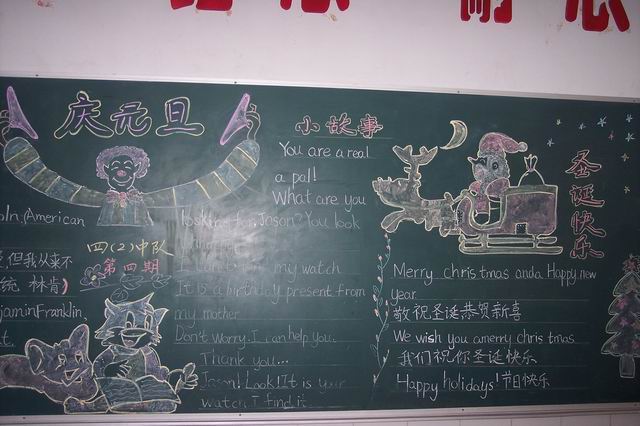 庆元旦
oln, American
,但我从来不
统 林肯)
jaminFranklin,
t.
四(2)中队
第四期
小故事
You are a real
a pal!
What are you
looking for, Jason? You look
my watch
It is a birthday present from
my mother
Don't worry. I can help you.
Thank you...
Jason! Look! It is your
watch I find it
圣诞快乐
Merry christmas anda Happy new
year
敬祝圣诞恭贺新喜
We wish you amerry christmas
我们祝你圣诞快乐
Happy holidays! 节日快乐